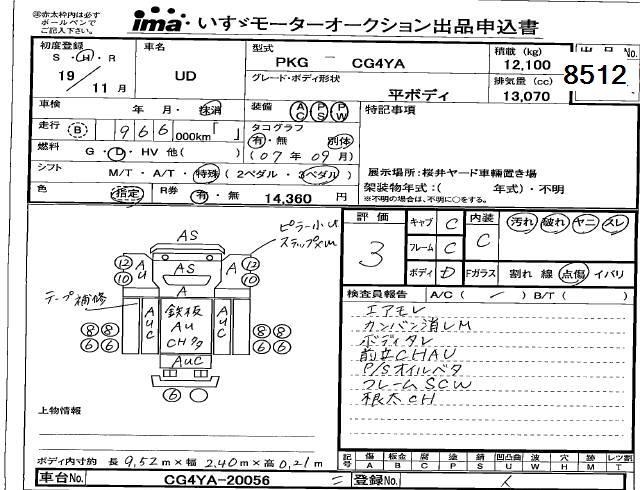 ㊟赤太枠内は必ず
ボールペンで
ご記入下さい。
ima いすゞモーターオークション出品申込書
初度登録
S・H・R
19 / 11月
車名
UD
型式
PKG － CG4YA
グレード・ボディ形状
平ボディ
積載 (kg)
12,100
排気量 (cc)
13,070
出品 No.
8512
車検 年 月・抹消
装備 AC PS PW
特記事項
走行 B 966 000km「 」
タコグラフ
有・無 別体
(07年09月)
燃料 G・D・HV 他( )
展示場所：桜井ヤード車輌置き場
シフト M/T・A/T・特殊 (2ペダル・3ペダル)
架装物年式：( 年式)・不明
※不明の場合は、不明に○をする。
色 指定 R券 有・無 14,360 円
評価
3
キャブ C
フレーム C
ボディ D
内装
C
汚れ 破れ ヤニ スレ
Fガラス 割れ 線 点傷 イバリ
検査員報告 A/C( ) B/T( )
エアモレ
カンバン消しM
ボディタレ
前立CHAU
P/Sオイルベタ
フレームSCW
根太CH
ピラー小U
ステップ×U
AS
12 AU AS A 12
10 10
A
テープ補修
AUC 鉄板 AUC
AU
CHクタ
8 8 8 8
6 6 6 6
AUC
6
上物情報
ボディ内寸約 長9.52m×幅2.40m×高0.21m
記号 傷A 板金B 腐C 塗P 錆S 凹U 凸凹曲 波W 穴H 跡M レツ割T
車台No. CG4YA-20056
登録No.